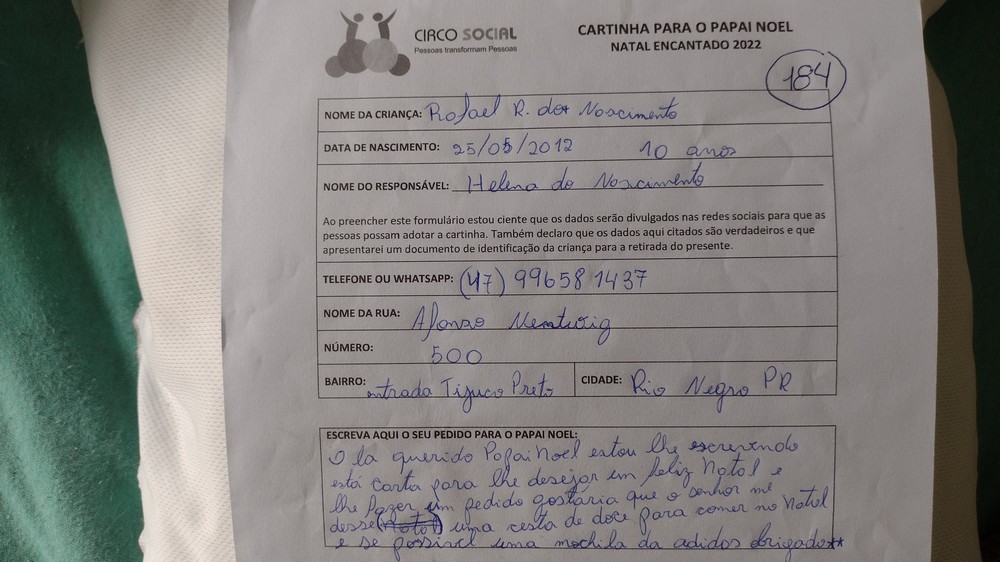 CIRCO SOCIAL
Pessoas transformam Pessoas
CARTINHA PARA O PAPAI NOEL
NATAL ENCANTADO 2022
184
NOME DA CRIANÇA: Rafael R. dos Nascimento
DATA DE NASCIMENTO: 25/05/2012 10 anos
NOME DO RESPONSÁVEL: Helena do Nascimento
Ao preencher este formulário estou ciente que os dados serão divulgados nas redes sociais para que as
pessoas possam adotar a cartinha. Também declaro que os dados aqui citados são verdadeiros e que
apresentarei um documento de identificação da criança para a retirada do presente.
TELEFONE OU WHATSAPP: (47) 99658 1437
NOME DA RUA: Afonso
NÚMERO: 500
BAIRRO: entrada Tijuco Preto CIDADE: Rio Negro PR
ESCREVA AQUI O SEU PEDIDO PARA O PAPAI NOEL:
O la querido Papai Noel estou lhe escrevendo
está carta para lhe desejar um feliz Natal e
lhe fazer um pedido gostaria que o senhor me
desse uma cesta de doce para comer no Natal
e se possiael uma mochila da adidos obrigado**